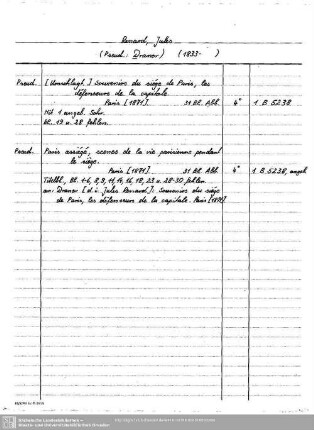 Renard, Jules
(Pseud.: Draner) (1833- )
Pseud. [Umschlagt.] Souvenirs du siège de Paris, les
défenseurs de la capitale.
Paris [1871]. 31 Bl. Abb. 4° 1 B 5238
Mit 1 angeb. Schr.
Bl. 19 u. 28 fehlen.
Pseud. Paris assiégé, scenes de la vie parisienne pendant
le siège.
Paris [1871] 31 Bl. Abb. 4° 1 B 5238, angeb.
Titelbl., Bl. 1-6, 8, 9, 11, 14, 16, 18, 23 u. 28-30 fehlen.
an: Draner [d. i. Jules Renard]: Souvenirs du siège
de Paris, les défenseurs de la capitale. Paris [1871]